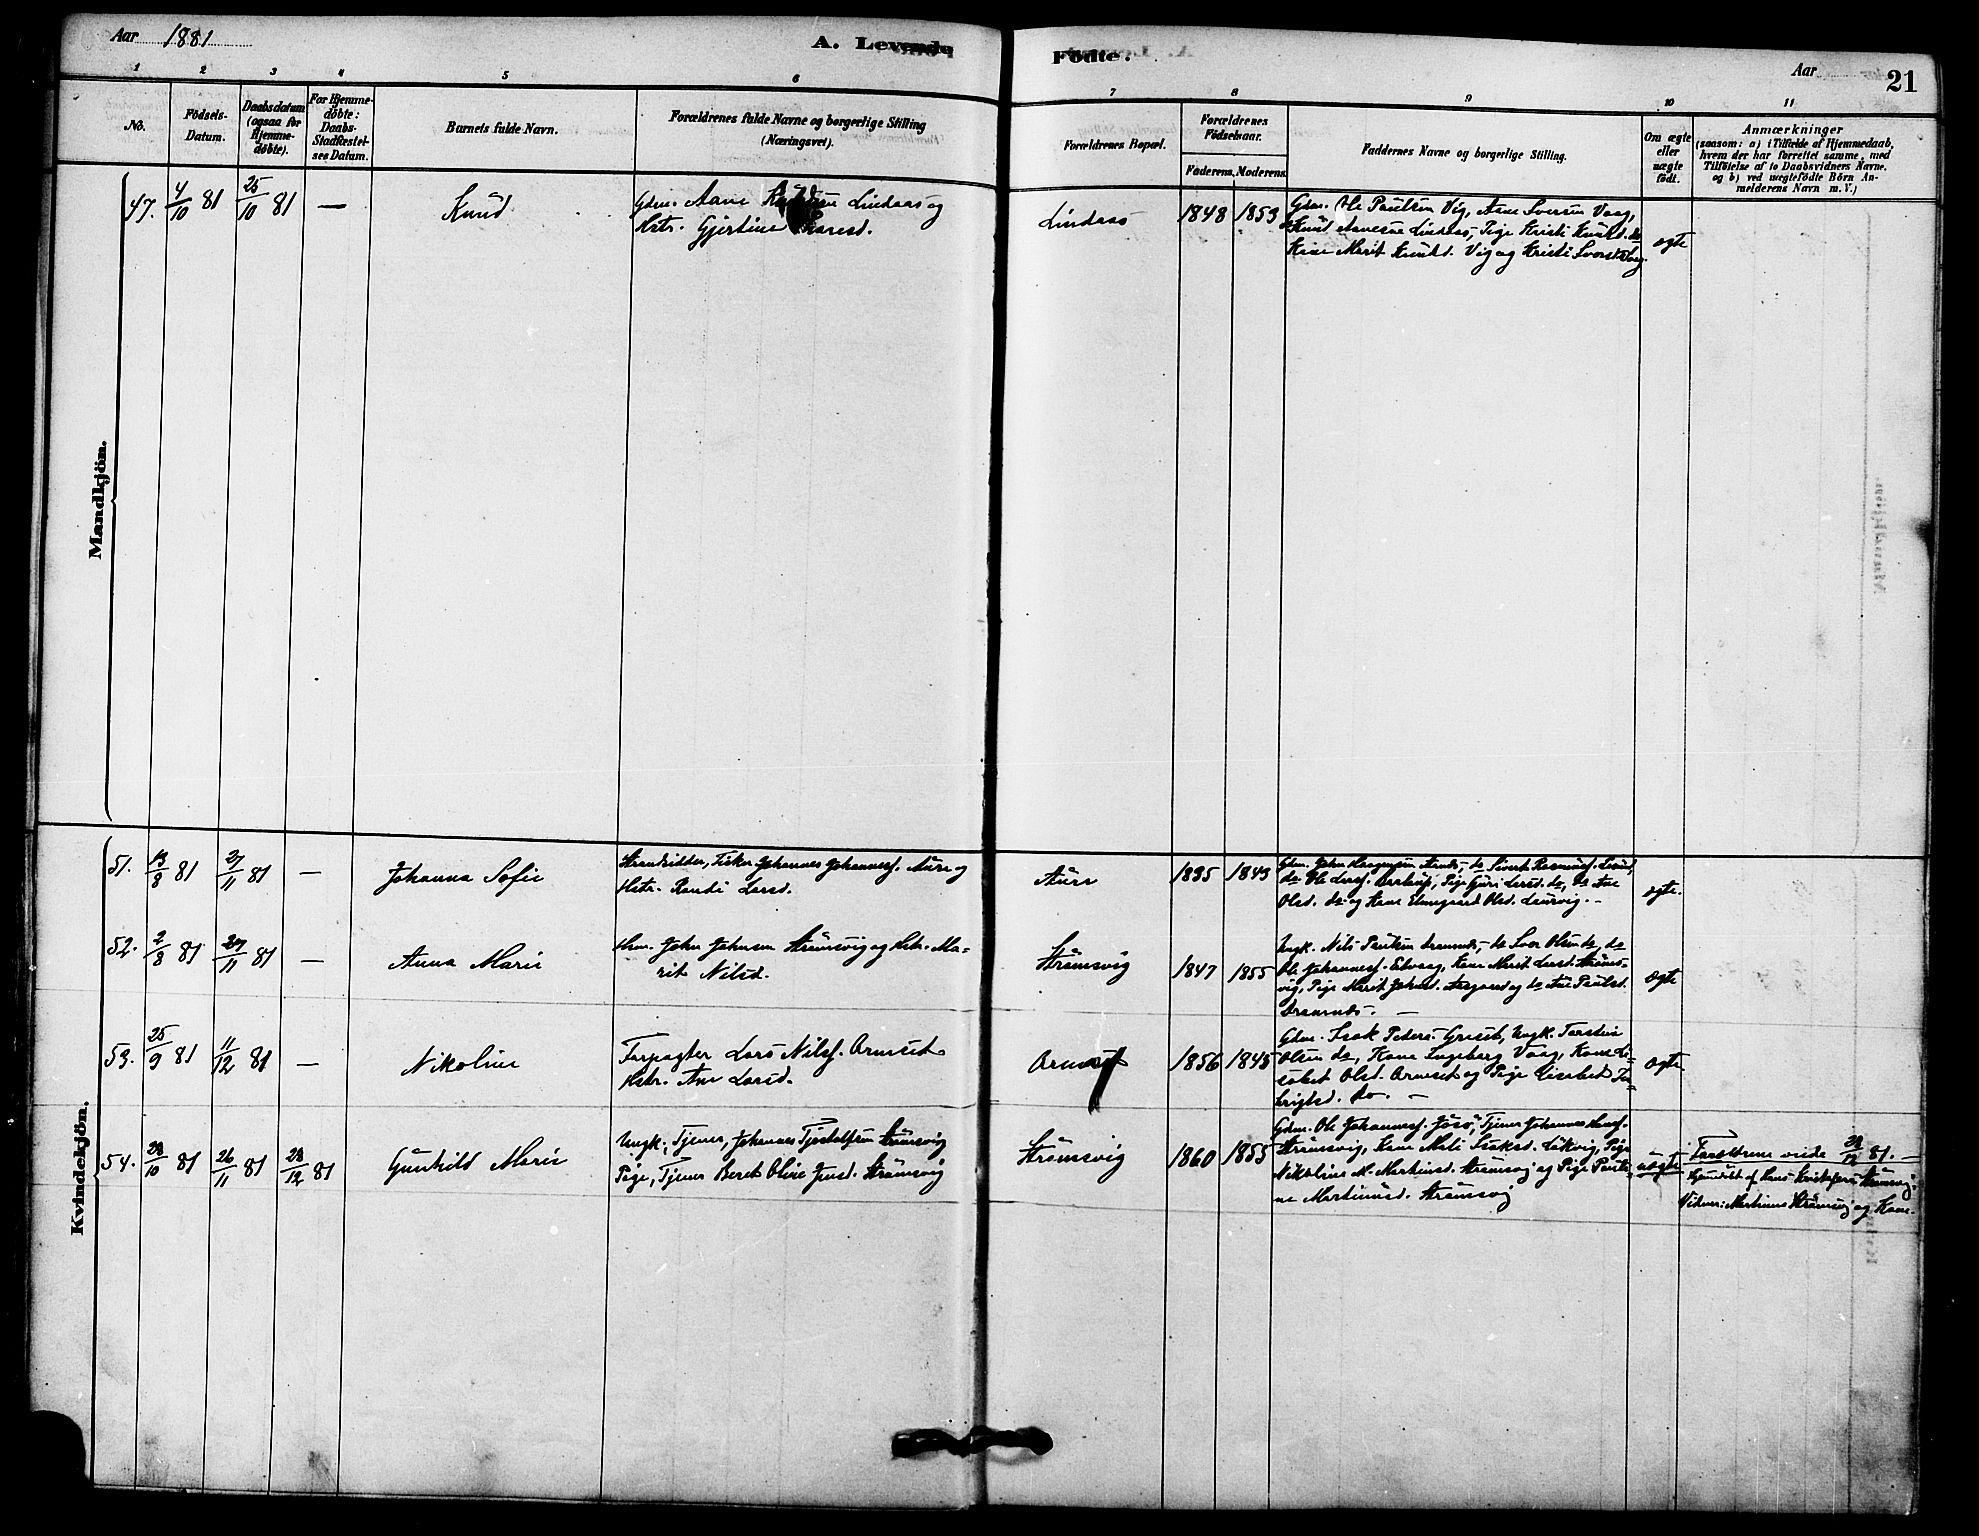 Aar 1881
A. Levende
Födte.
Aar
21
1 2 3 4 5 6 7 8 9 10 11
No.
Födsels-
Datum.
Daabsdatum
(ogsaa for
Hjemme-
döbte).
For Hjemme-
döbte:
Daabs-
Stadfæstel-
ses Datum.
Barnets fulde Navn.
Forældrenes fulde Navne og borgerlige Stilling
(Næringsvei).
Forældrenes Bopæl.
Forældrenes
Födselsaar.
Faderens. Moderens.
Faddernes Navne og borgerlige Stilling.
Om ægte
eller
uægte
födt.
Anmærkninger
(saasom: a) i Tilfælde af Hjemmedaab,
hvem der har forrettet samme, med
Tilföielse af to Daabsvidners Navne,
og b) ved uægtefödte Börn An-
melderens Navn m. V.)
Mandkjön.
47. 4/10 81 25/10 81 — Knud
Gdm. Lindaas og
Hstr. Gjertine
Lindaas 1848 1853
Gdm. Ole Paulsen Vig, Arne Sversen Vaag,
Knud Aanesen Lindaas, Pige Kristi Knudsd. do
Kone Marit Knudsd. Vig og Kristi
ægte
Kvindekjön.
51. 13/8 81 27/11 81 — Johanna Sofie
Strandsidder, Fisker Johannes Johannesf. Aure og
Hstr. Randi Larsd.
Aure 1835 1843
Gdm. John do Sivert
do Ole Larsf. Pige Guri Larsd. do, do Ane
Olsd. do og Kone Olsd.
ægte.
52. 2/8 81 27/11 81 — Anna Marie
Hsm. John Johnsen Strömsvig og Hstr. Ma-
rit Nilsd.
Strömsvig 1847 1855
Ungk. Nils Paulsen do Iver Olsen do, do
Ole Johannesf. Kone Marit Larsd. Ströms-
vig, Pige Marit Johnsd. og do Ane Paulsd.
ægte
53. 25/9 81 11/12 81 — Nikoline
Forpagter Lars Nilsf. Ormset
Hstr. Ane Larsd.
Ormset 1856 1845
Gdm. Isak Peders. Griset, Ungk. Torstein
Olsen do, Kone Ingeborg Vaag, Kone Li-
sabet Olsd. Ormset og Pige Lisabet In-
brigtsd. do. —
ægte
54. 28/10 81 26/11 81 28/12 81 Gunhild Marie
Ungk., Tjener, Johannes Strömsvig
Pige, Tjener Beret Oline Strömsvig
Strömsvig 1860 1855
Gdm. Ole Johannesf. Tjener Johannes Hansf.
Strömsvig, Kone Isaksd. Pige
Nikoline M. Martinsd. Strömsvig og Pige Pauli-
ne Martinusd. Strömsvig
uægte
Forældrene viede 28/12 81. —
Hjemdöbt af Hans Kristofersen Strömsvig.
Vidner: Martinus Strömsvig og Kone.